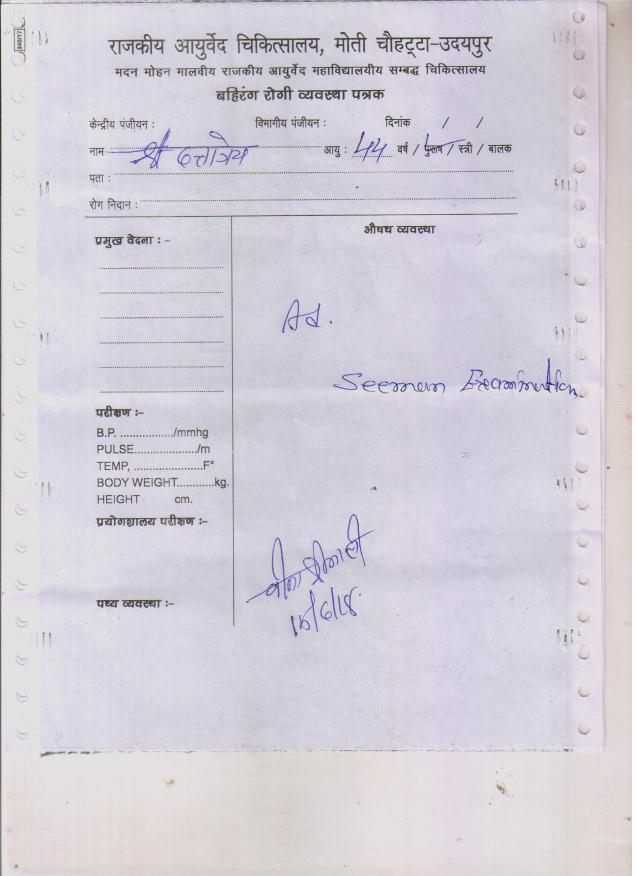 राजकीय आयुर्वेद चिकित्सालय, मोती चौहट्टा-उदयपुर
मदन मोहन मालवीय राजकीय आयुर्वेद महाविद्यालयीय सम्बद्ध चिकित्सालय
बहिरंग रोगी व्यवस्था पत्रक
केन्द्रीय पंजीयन : विभागीय पंजीयन : दिनांक / /
नाम श्री दत्तात्रेय आयु : 44 वर्ष / पुरूष / स्त्री / बालक
पता :
रोग निदान :
प्रमुख वेदना : -
औषध व्यवस्था
Ad.
Seeman Examination
परीक्षण :-
B.P. ................./mmhg
PULSE...................../m
TEMP, .....................F°
BODY WEIGHT...........kg.
HEIGHT cm.
प्रयोगशालय परीक्षण :-
पथ्य व्यवस्था :-